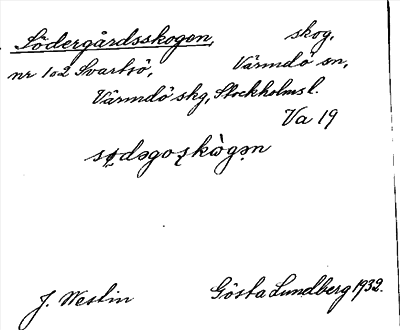 Södergårdsskogen, skog,
nr 1o2 Svartsö, Värmdö sn,
Värmdö skg, Stockholms l.
Va 19
J. Westin Gösta Lundberg 1932.